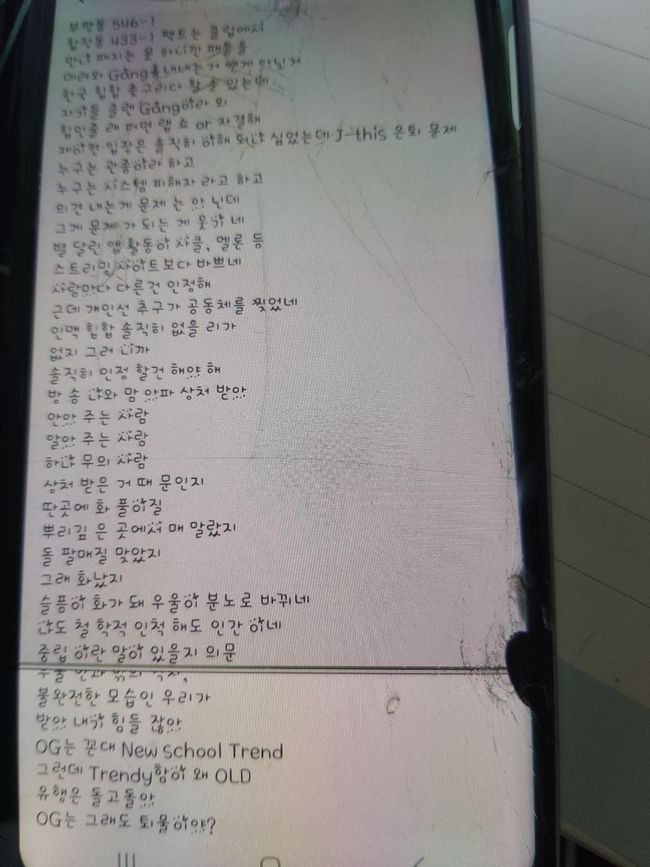 부평동 546-1
합정동 433-1 팩트는 클럽에서
만나 때지는 못 하니깐 패들을
데려와 Gang흉내내는 거 쌘게 아닌거
한국 힙합 좆구리다 할 순 있는데
지들을 클랜 Gang이라 외
힙인줄 래퍼면 랩 쇼 or 자결해
제이원 입장은 솔직히 이해 되나 싶었는데 J-this 은퇴 문제
누구는 관종이라 하고
누구는 시스템 피해자 라고 하고
의견 내는게 문제 는 아 닌데
그게 문제 가 되는 게 웃기 네
별 달린 앱 활동이 사클, 멜론 등
스트리밍 사이트보다 바쁘네
사람마다 다른건 인정해
근데 개인선 추구가 공동체를 찢었네
인맥 힙합 솔직히 없을 리가
없지 그러 니까
솔직히 인정 할건 해야 해
방 송 나와 맘 아파 상처 받아
안아 주는 사람
알아 주는 사람
하나 무의 사람
상처 받은 거 때 문인지
딴곳에 화 풀이질
뿌리깊 은 곳에서 매 말랐지
돌 팔매질 맞았지
그래 화났지
슬픔이 화가 돼 우울이 분노로 바뀌네
나도 철 학적 인척 해도 인간 이네
중립 이란 말이 있을지 의문
불완전한 모습인 우리가
받아 내기 힘들 잖아
OG는 꼰대 New School Trend
그런데 Trendy함이 왜 OLD
유행은 돌고돌아
OG는 그래도 퇴물이야?